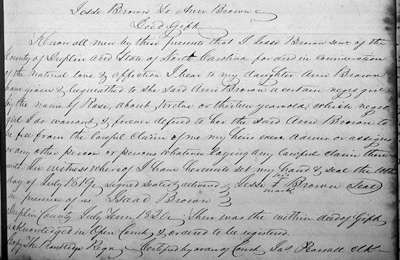 Jesse Brown To Ann Brown
Deed Gift
Know all men by these presents that I Jesse Brown senr of the
County of Duplin and State of North Carolina for & in Consideration
of the Natural love & affection I bear to my daughter Ann Brown
have given & bequeathed to the Said Ann Brown a certain negro girl
by the name of Rose, about twelve or thirteen years old, which negro
girl I do warrant & forever defend to her the Said Ann Brown to
be free from the lawful Claim of me my heirs exrs admrs or assigns
or any other person or persons whatever laying any lawful claim there
unto In witness whereof I have hereunto set my hand & seal the
day of July 1819. Signed Sealed & delivered Jesse Brown Seal
in presence of us Stead Brown mark
Duplin County July Term Then was the within deed of Gift
acknowledged in Open Court & ordered to be registered.
Certified by order of Court Jas Pearsall clk